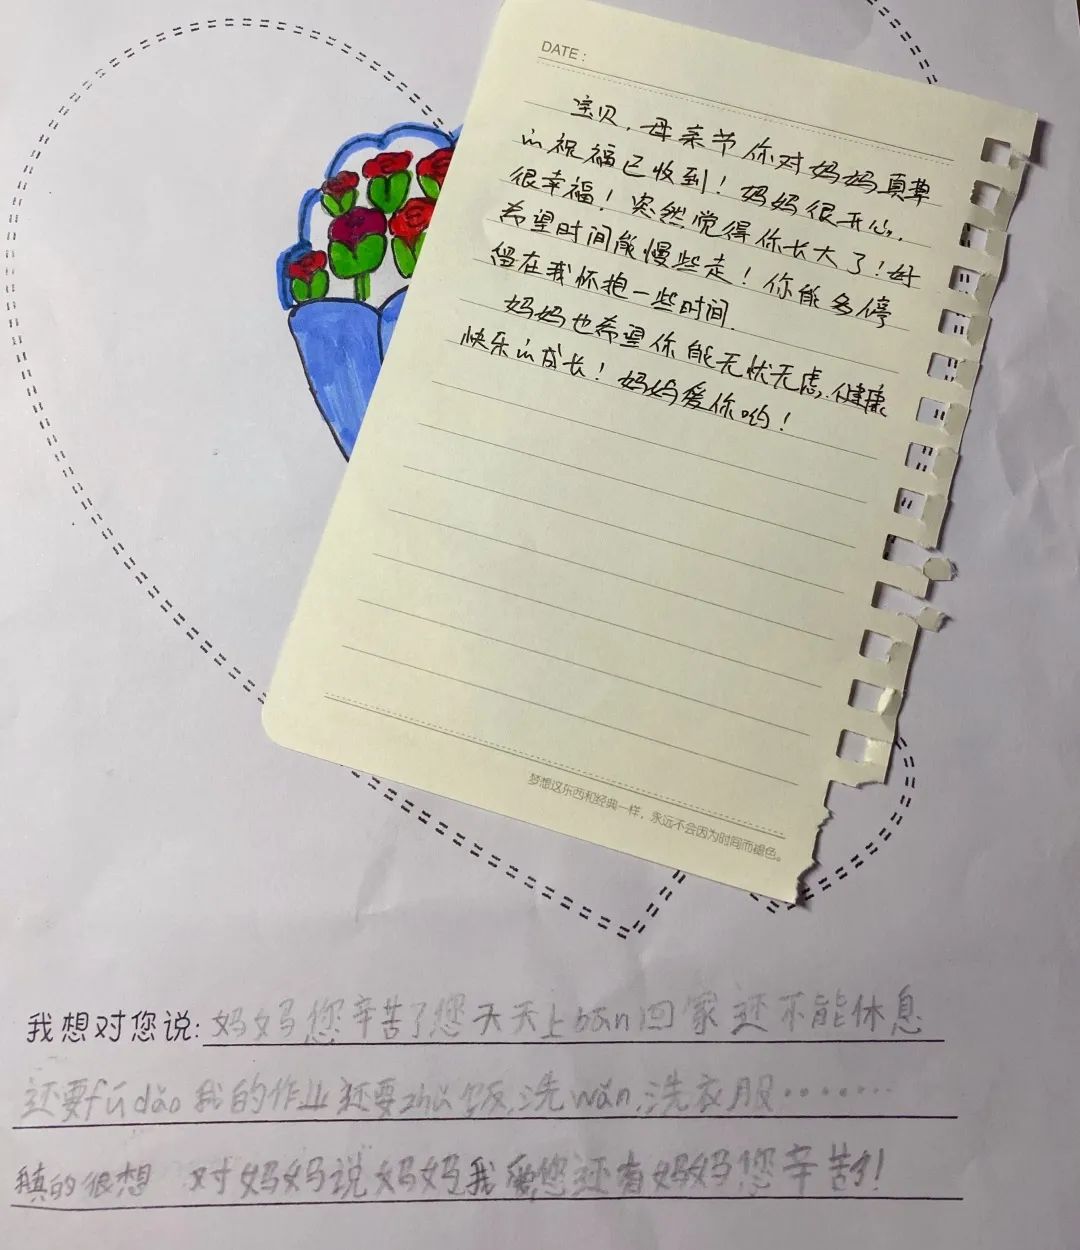 DATE：
宝贝，母亲节你对妈妈真挚
的祝福已收到！妈妈很开心，
很幸福！突然觉得你长大了！好
希望时间能慢些走！你能多停
留在我怀抱一些时间．
妈妈也希望你能无忧无虑，健康
快乐的成长！妈妈爱你哟！
梦想这东西和经典一样，永远不会因为时间而褪色。
我想对您说：妈妈您辛苦了您天天上bān回家还不能休息
还要fǔ dǎo我的作业还要zhǔ饭，洗wǎn，洗衣服········
我真的很想 对妈妈说妈妈我爱您还有妈妈您辛苦了！